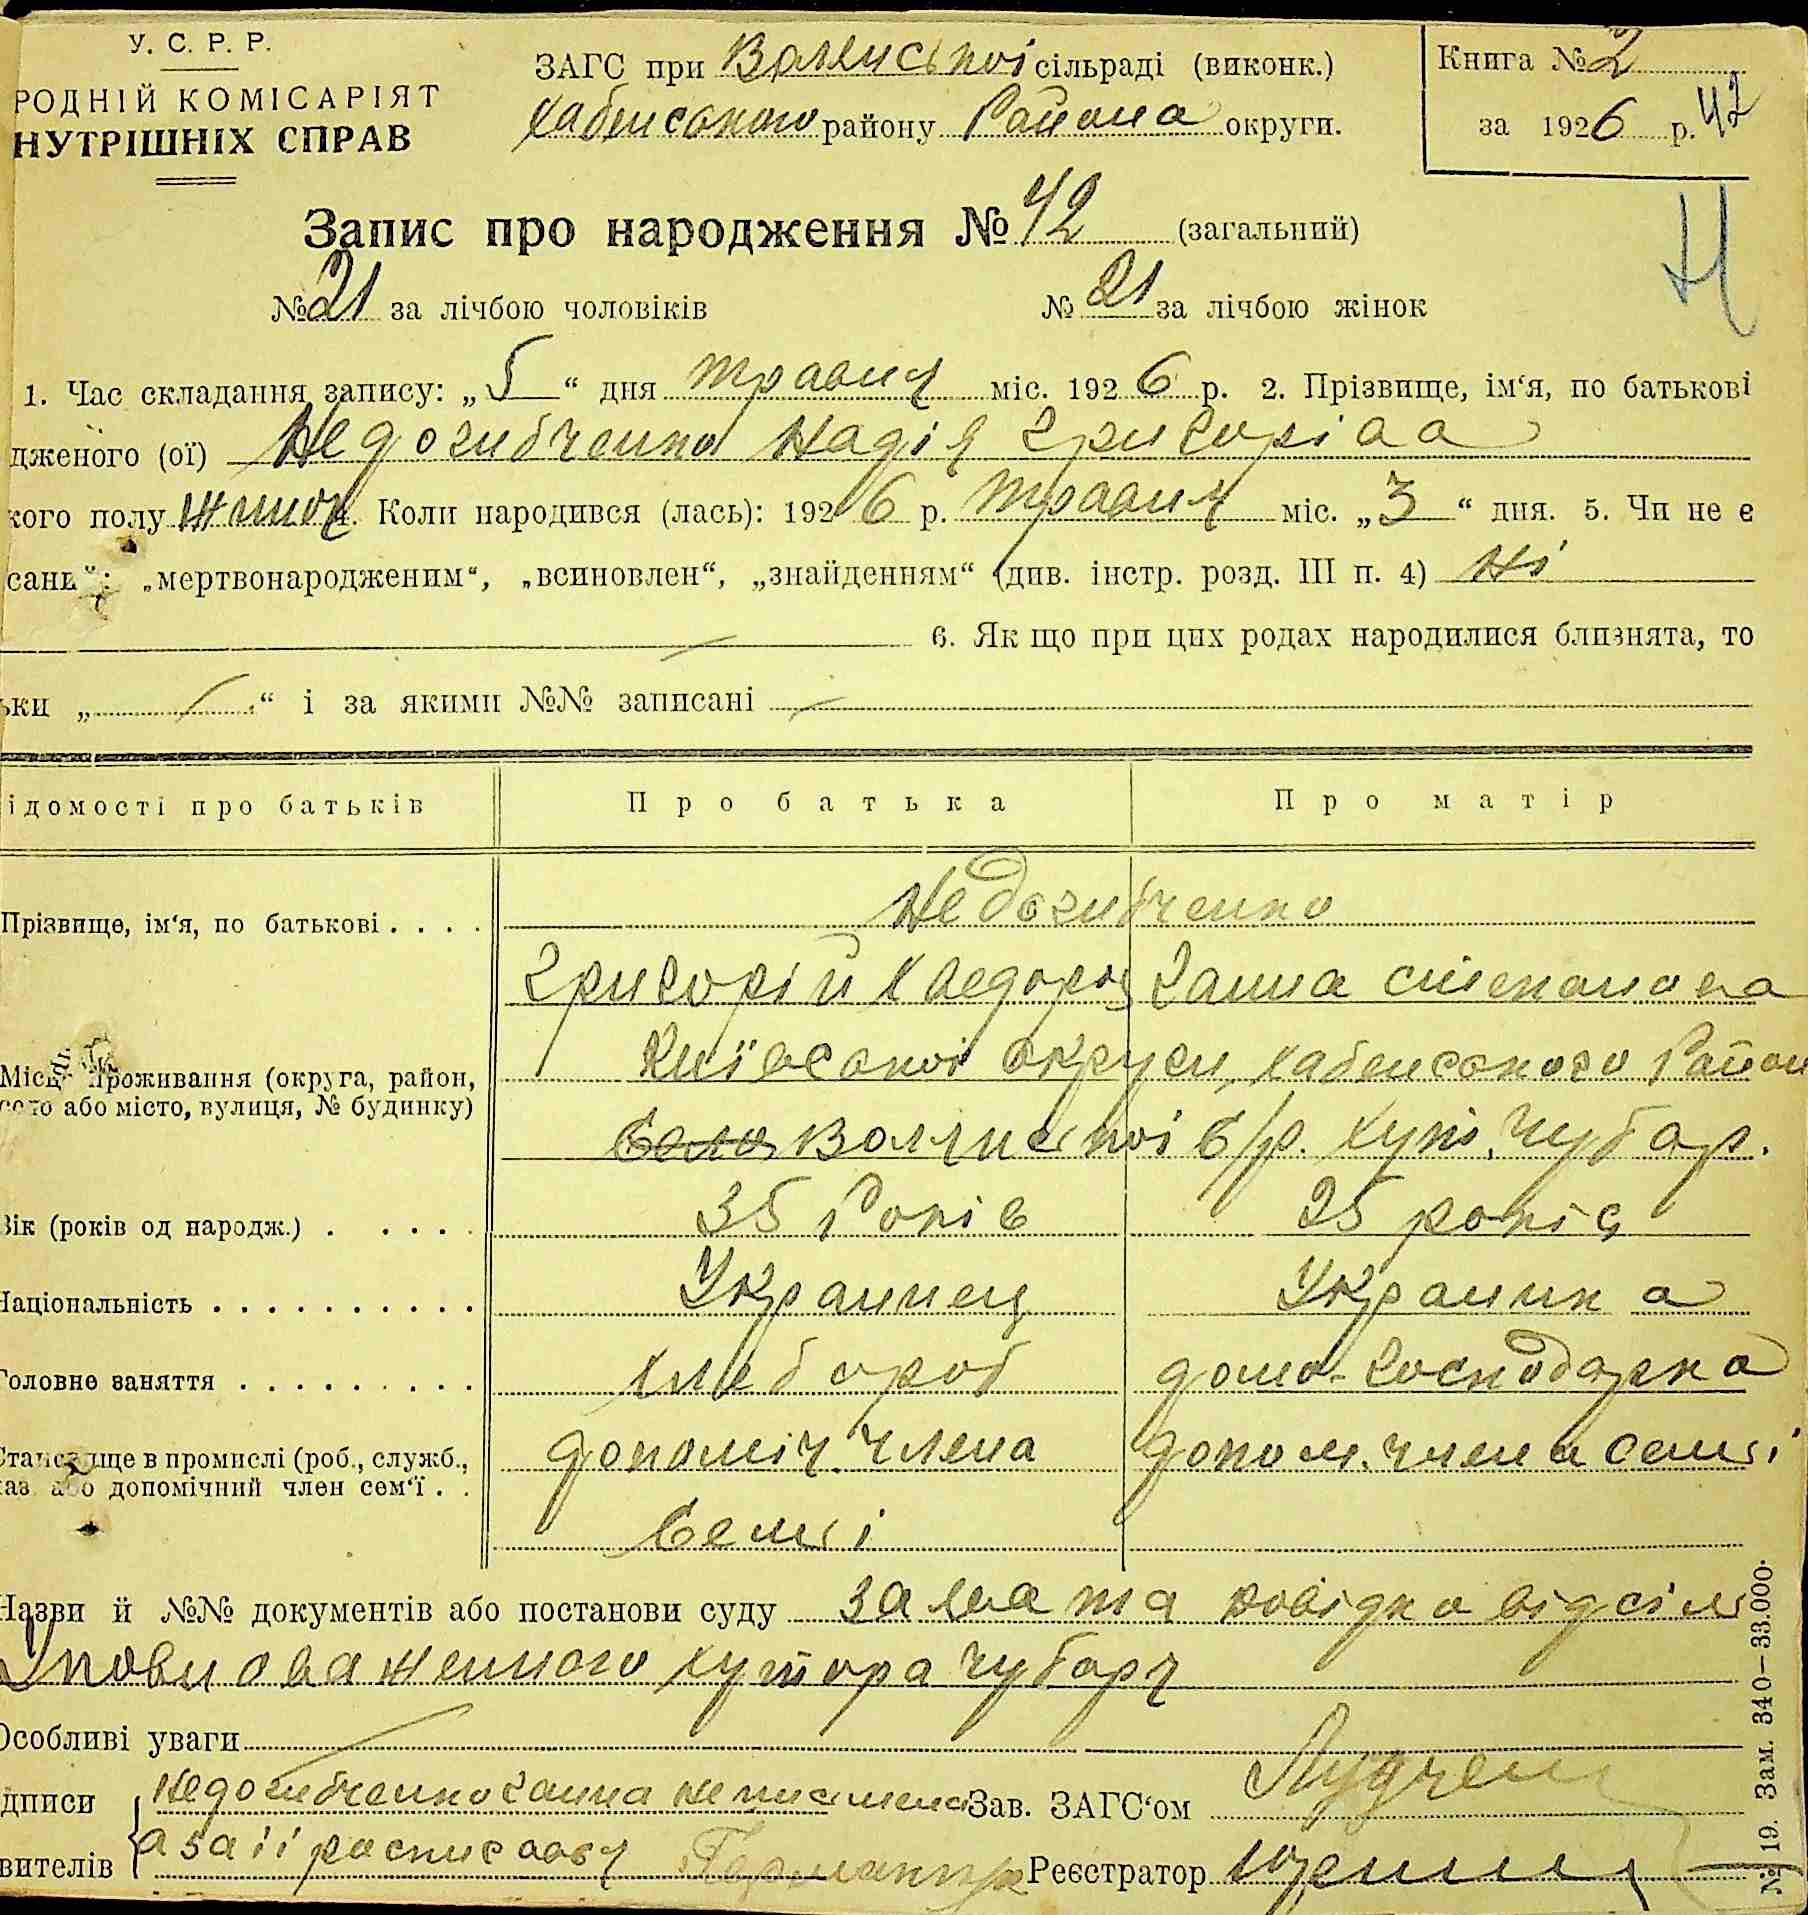 У. С. Р. Р.
РОДНІЙ КОМІСАРІЯТ
НУТРІШНІХ СПРАВ
ЗАГС при сільраді (виконк.)
Хабенського району Района округи.
Книга № 2
за 1926 р. 42
Запис про народження № 42 (загальний)
Н
№ 21 за лічбою чоловіків № 21 за лічбою жінок
1. Час складання запису: „5“ дня травня міс. 1926 р. 2. Прізвище, ім‘я, по батькові
дженого (ої) Недогибченко Надія Григорівна
кого полу жиноч. Коли народився (лась): 1926 р. травня міс. „3“ дня. 5. Чи не є
сань“: „мертвонародженим“, „всиновлен“, „знайденням“ (див. інстр. розд. III п. 4) Ні
6. Як що при цих родах народилися близнята, то
ьки „ “ і за якими №№ записані
ідомості про батьків Про батька Про матір
Прізвище, ім‘я, по батькові . . . . Недогибченко
Григорій Хведоров Ганна Степанова
Місце проживання (округа, район,
село або місто, вулиця, № будинку)
Київської округи, Хабенського Район
с/р. хут. Чубар.
Вік (років од народж.) . . . . . 35 Років 25 років
Національність . . . . . . . . . . . Украинец Украинка
Головне заняття . . . . . . . . . хлебороб домо-господарка
Становище в промислі (роб., служб.,
хаз. або допомічний член сем‘ї . .
допоміч. члена допом. члена семьі
семьі
Назви й №№ документів або постанови суду заява та довідка від сіль
Уповноваженного хутора Чубаря
Особливі уваги
дписи Недогибченко Ганна неписьмена Зав. ЗАГС‘ом
вителів а за іі росписався Реєстратор
№ 19. Зам. 340–33.000.